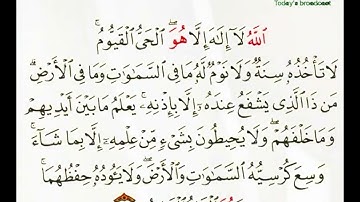 Today's broadcast
ٱللَّهُ لَآ إِلَٰهَ إِلَّا هُوَ ٱلْحَىُّ ٱلْقَيُّومُ ۚ
لَا تَأْخُذُهُۥ سِنَةٌ وَلَا نَوْمٌ ۚ لَّهُۥ مَا فِى ٱلسَّمَٰوَٰتِ وَمَا فِى ٱلْأَرْضِ ۗ
مَن ذَا ٱلَّذِى يَشْفَعُ عِندَهُۥٓ إِلَّا بِإِذْنِهِۦ ۚ يَعْلَمُ مَا بَيْنَ أَيْدِيهِمْ
وَمَا خَلْفَهُمْ ۖ وَلَا يُحِيطُونَ بِشَىْءٍ مِّنْ عِلْمِهِۦٓ إِلَّا بِمَا شَآءَ ۚ
وَسِعَ كُرْسِيُّهُ ٱلسَّمَٰوَٰتِ وَٱلْأَرْضَ ۖ وَلَا يَـُٔودُهُۥ حِفْظُهُمَا ۚ